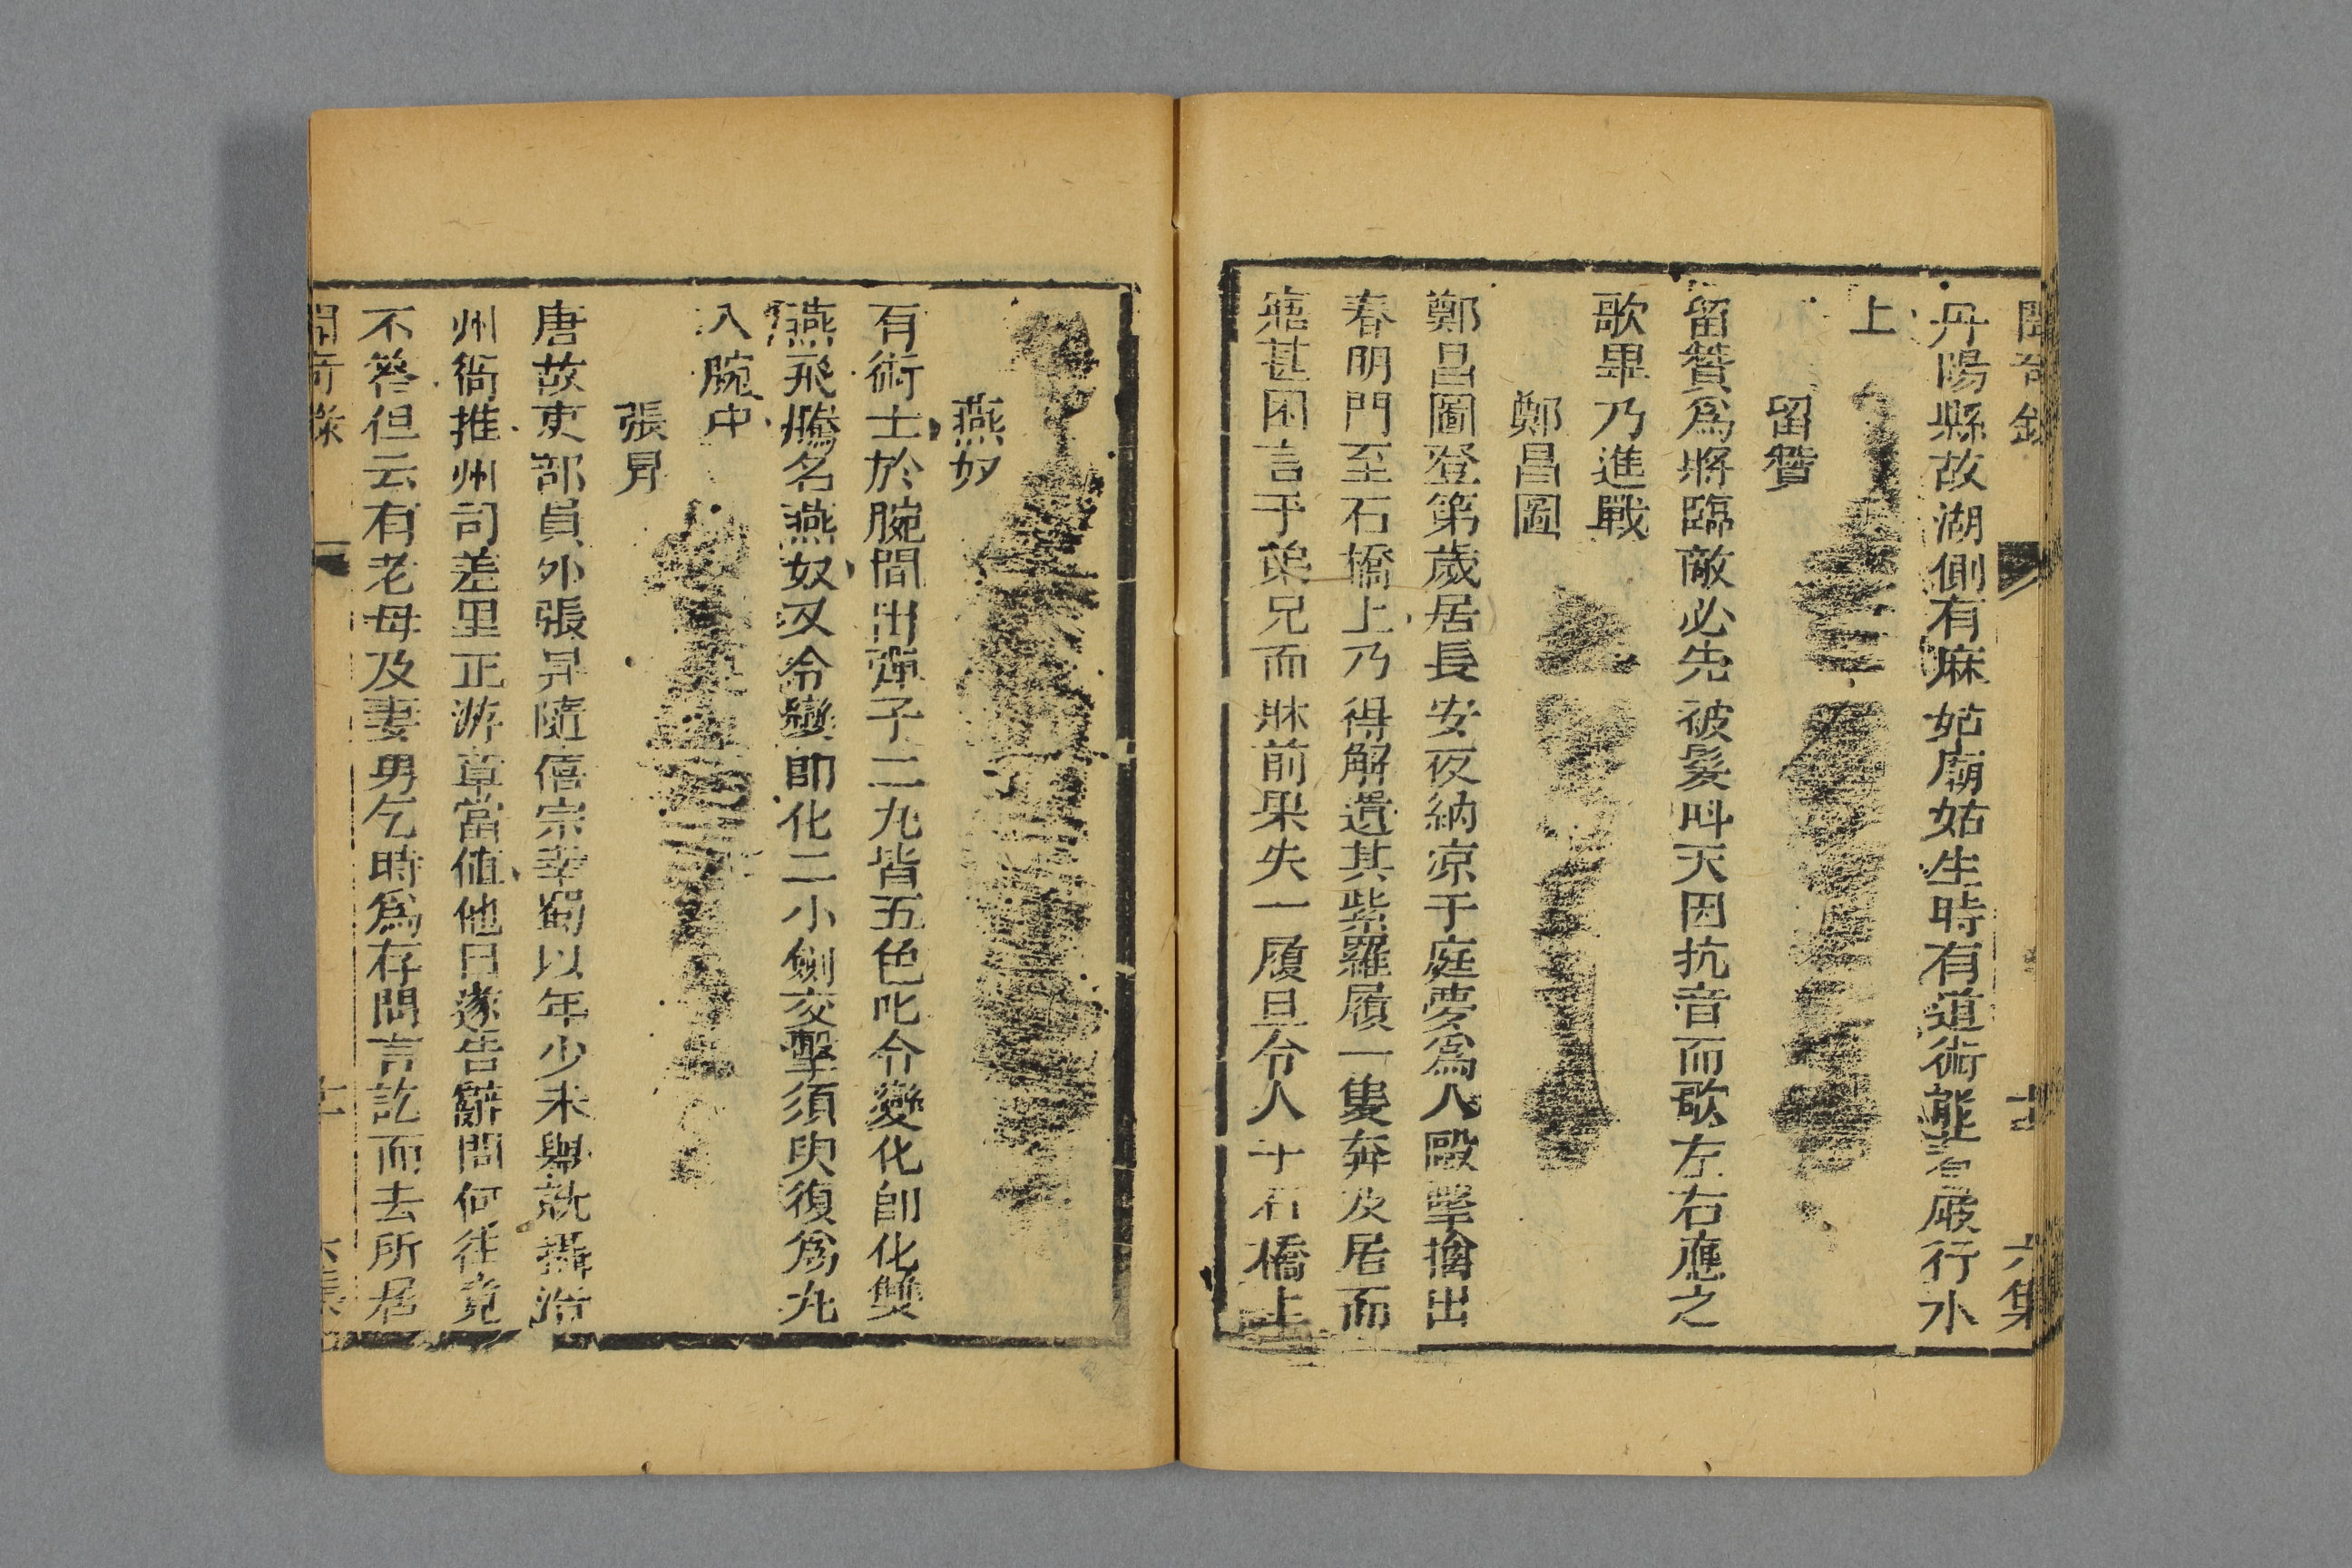 聞奇錄 十 六集
丹陽縣故湖側有麻姑廟姑生時有道術能著屐行水
上
留贊
留贊爲將臨敵必先被髮叫天因抗音而歌左右應之
歌畢乃進戰
鄭昌圖
鄭昌圖登第歲居長安夜納凉于庭夢爲人毆擊擒出
春明門至石橋上乃得解遺其紫羅履一隻奔及居而
寤甚困言于弟兄而牀前果失一履旦令人于石橋上
燕奴
有術士於腕間出彈子二丸皆五色叱令變化卽化雙
燕飛騰名燕奴又令變卽化二小劍交擊須臾復爲丸
入腕中
張昇
唐故吏部員外張昇隨僖宗幸蜀以年少未舉就攝涪
州衙推州司差里正游章當値他日遂告辭問何往竟
不答但云有老母及妻男乞時爲存問言訖而去所居
聞奇錄 十一 六集